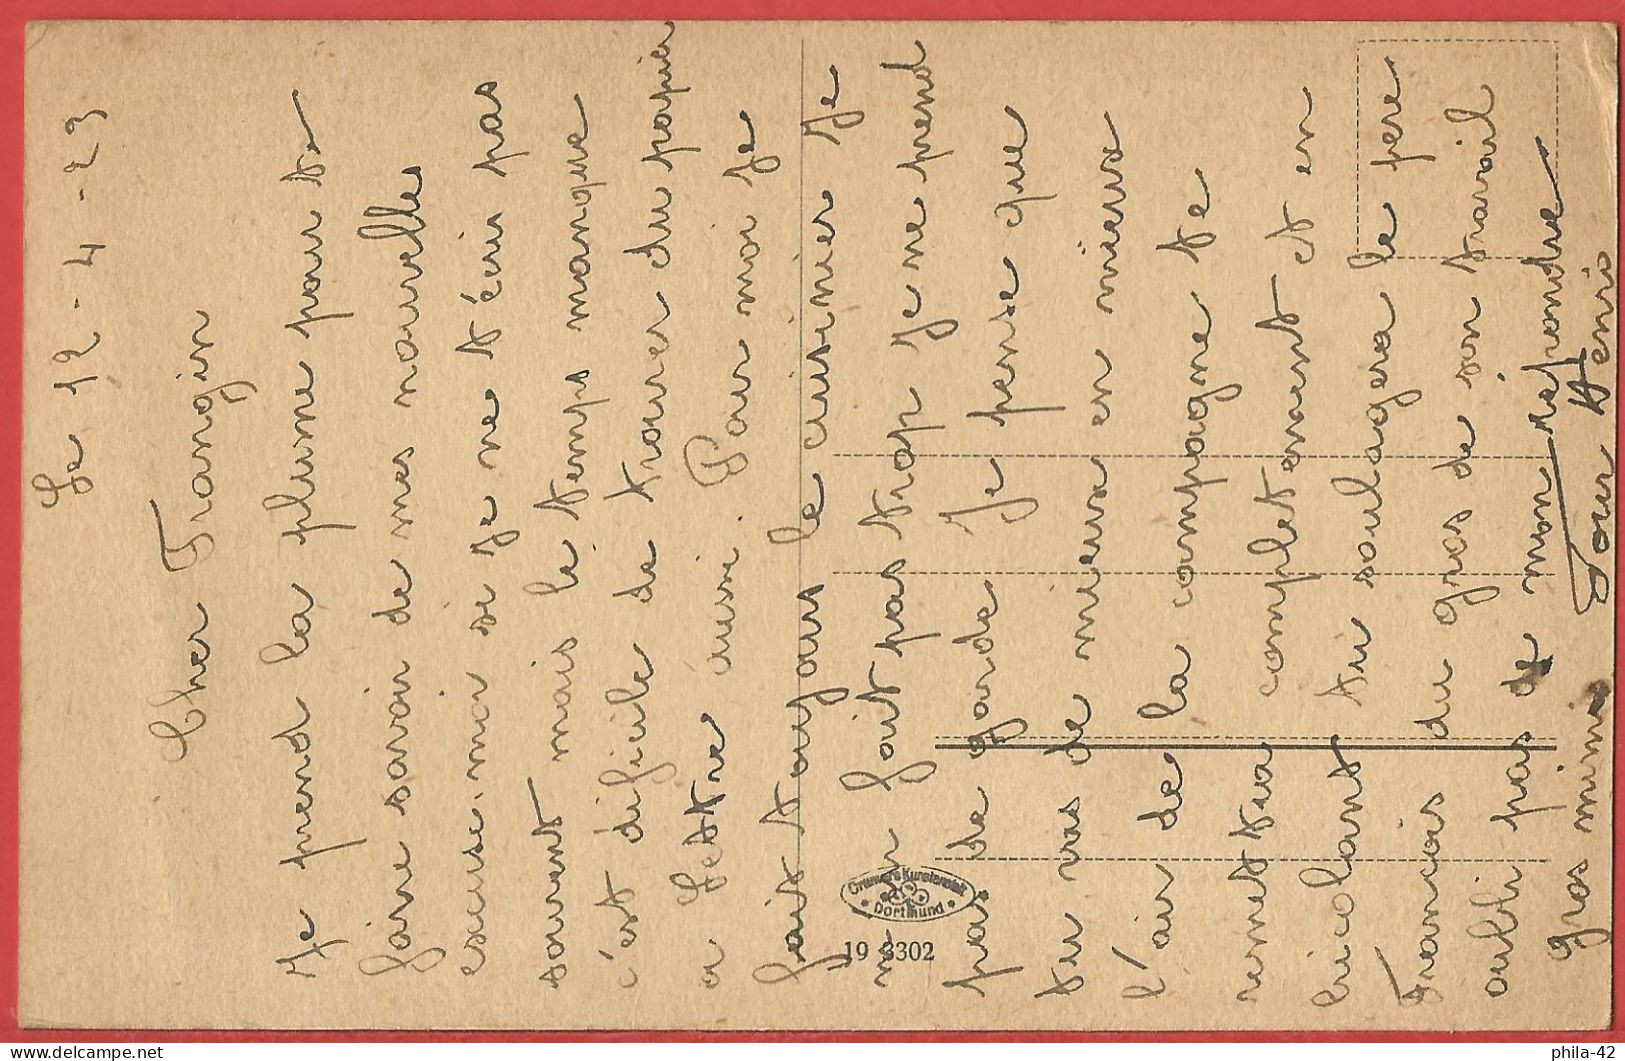 Le 12-4-23
Cher Frangin
Je prend la plume pour te
faire savoir de mes nouvelles
escuse-moi si je ne t'écri pas
souvent mais le temps manque
c'est dificile de trouver du papier
a lettre aussi. Pour moi je
fait toujours le cuisinier Je
m'en fait pas trop Je ne prend
pas de garde Je pense que
tu vas de mieux en mieux
l'air de la compagne te
remettra completement et en
bricolant tu soulagera le pere
Francois du gros de son travail
oubli pas de mon repondre
Gros mimi Ton Henri
Cramers Kunstanstalt
Dortmund
19 3302
phila-42